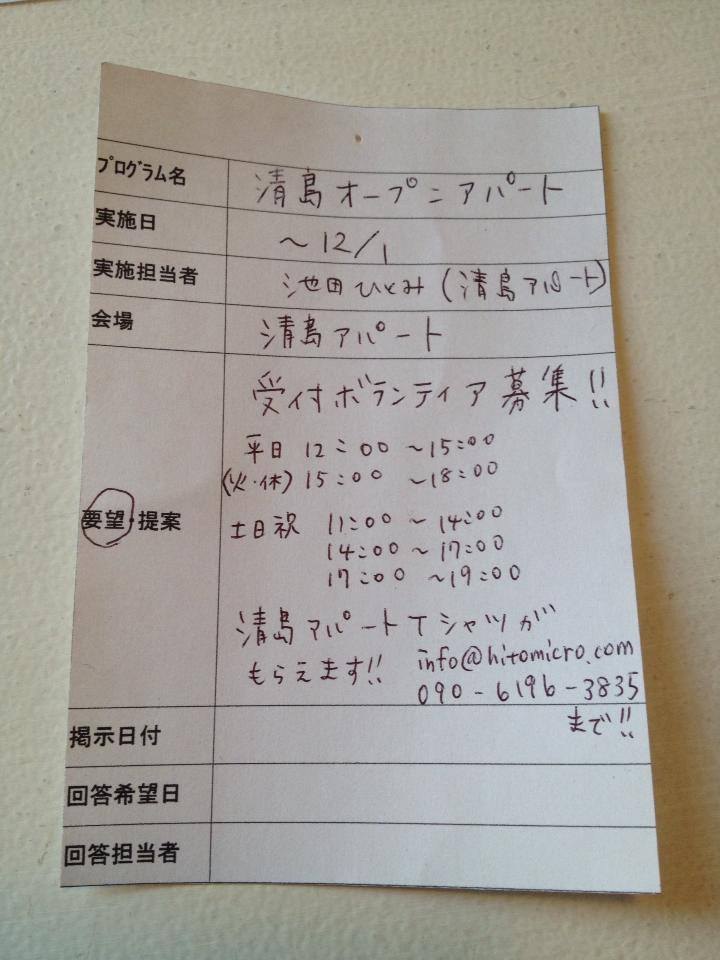 プログラム名 清島オープニアパート
実施日 〜12/1
実施担当者 池田ひとみ(清島アパート)
会場 清島アパート
受付ボランティア募集!!
平日 12:00 〜15:00
(火・休) 15:00 〜18:00
要望・提案
土日祝 11:00 〜 14:00
14:00 〜 17:00
17:00 〜19:00
清島アパートTシャツが
もらえます!! info@hitomicro.com
090-6196-3835
まで!!
掲示日付
回答希望日
回答担当者